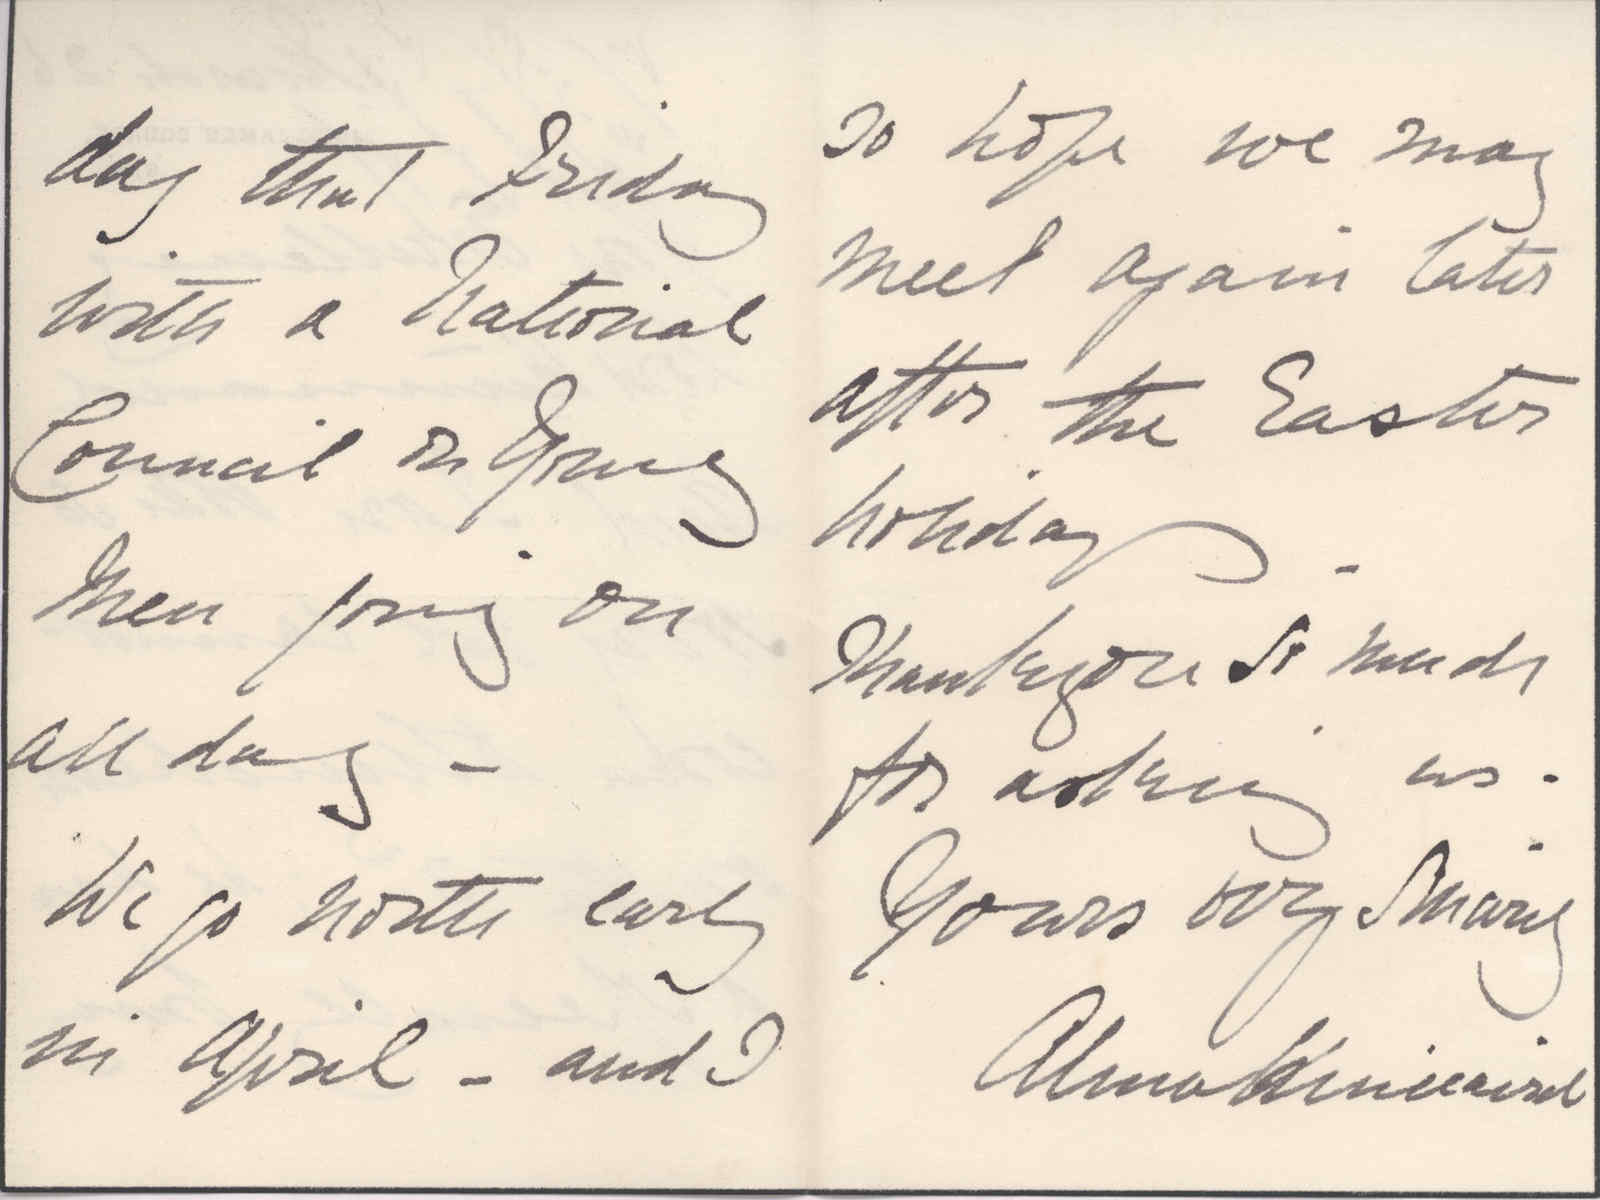 day that Friday
with a National
Council on Young
Men going on
all day –
We go north early
in April – and I
so hope we may
meet again later
after the Easter
holidays –
Thank you so much
for asking us.
Yours very Sincerely
Alma Kinnaird